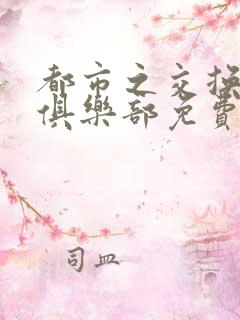 都市之交换
俱樂部免費
司皿